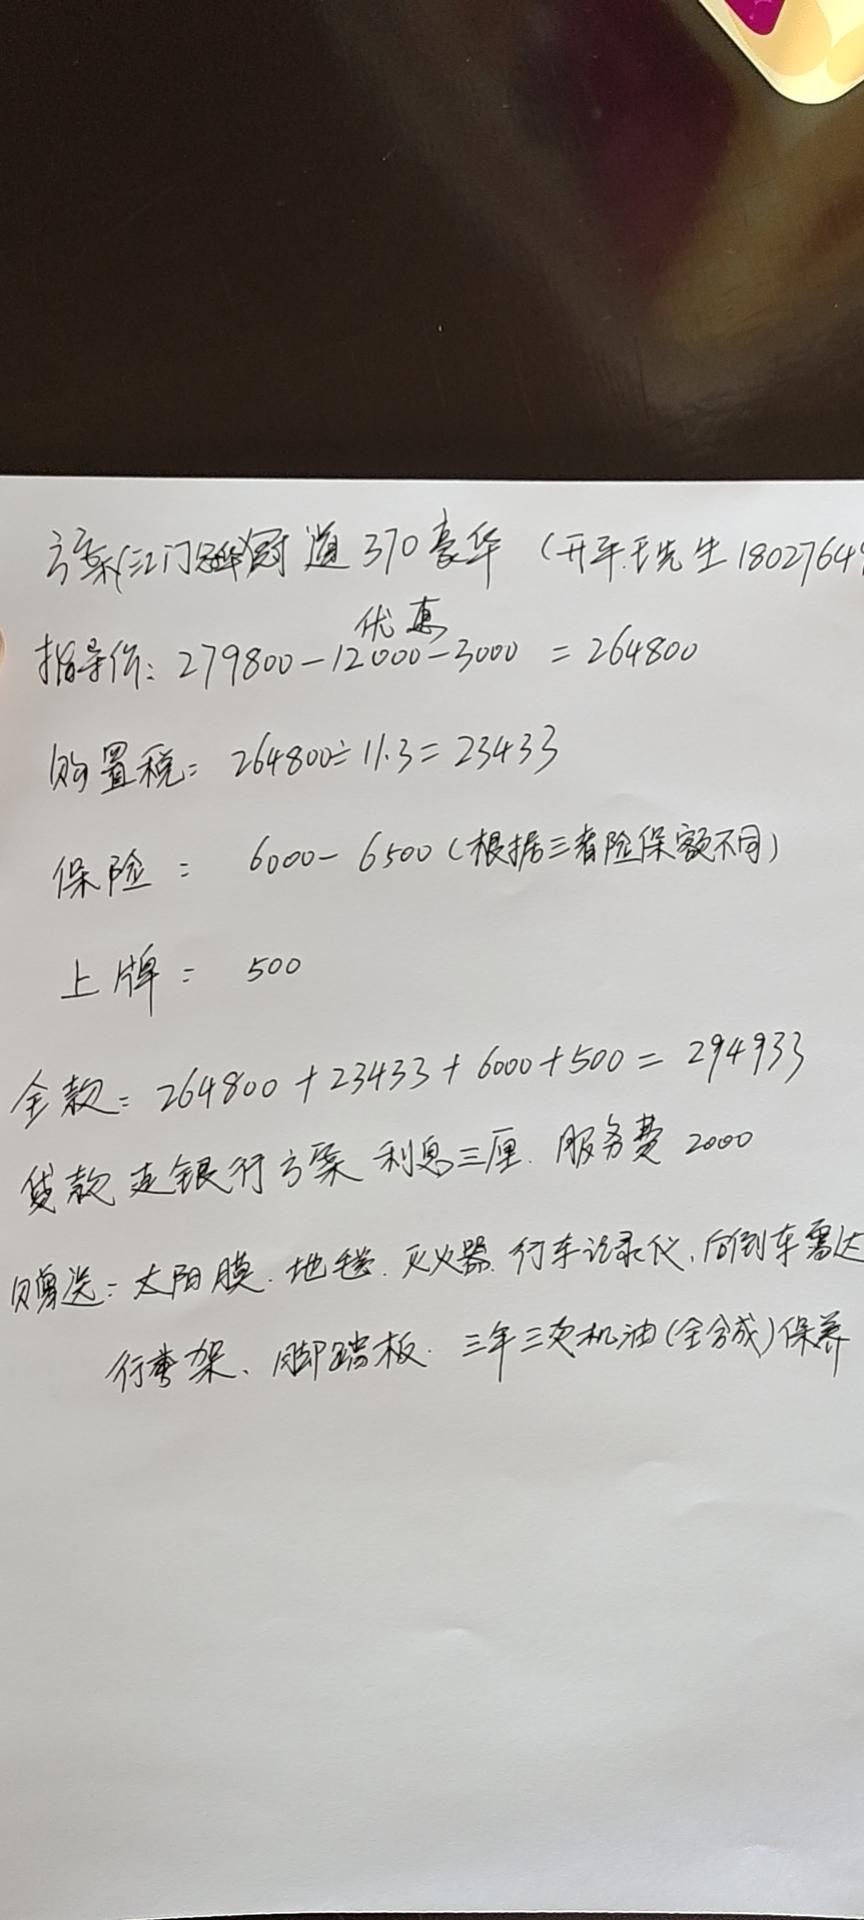 方案(江门冠华冠道370豪华(开平王先生1802764
优惠
指导价:279800-12000-3000=264800
购置税:264800÷11.3=23433
保险:6000-6500(根据三者险保额不同)
上牌:500
全款:264800+23433+6000+500=294933
贷款走银行方案 利息三厘.服务费2000
赠送:太阳膜.地毯.灭火器.行车记录仪、倒车雷达
行李架、脚踏板.三年三次机油(全合成)保养